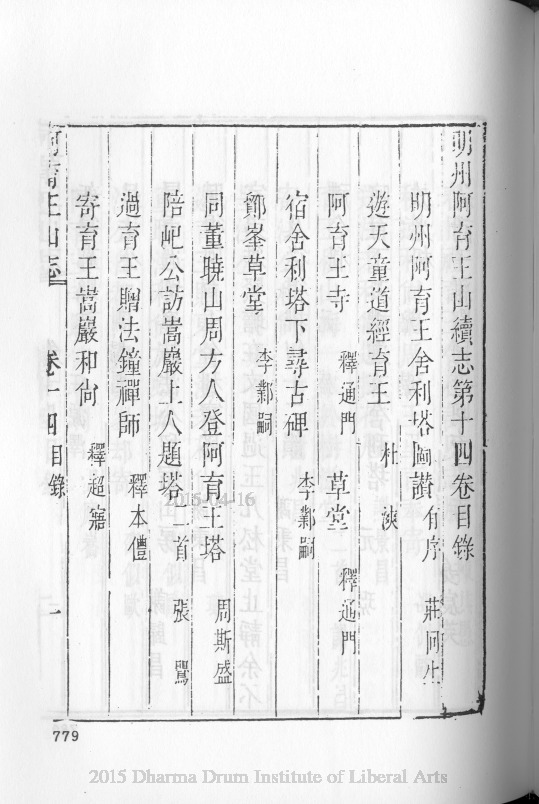 明州阿育王山續志第十四卷目錄
明州阿育王舍利塔圖讚有序 莊同生
遊天童道經育王 杜漺
阿育王寺 釋通門 草堂 釋通門
宿舍利塔下尋古碑 李鄴嗣
鄮峯草堂 李鄴嗣
同董曉山周方人登阿育王塔 周斯盛
陪屺公訪嵩巖上人題塔二首 張鴽
過育王贈法鐘禪師 釋本僼
寄育王嵩巖和尙 釋超
阿育王山志 卷十四目錄 一
779
2015-04-16
2015 Dharma Drum Institute of Liberal Arts